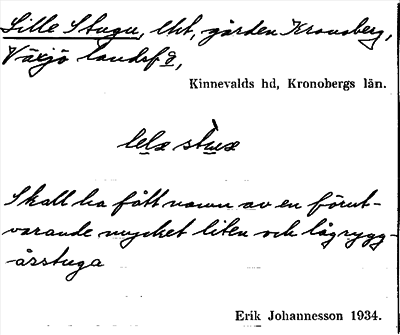 Lille Stugu, lht, gården Kronoberg,
Växjö landsf g,
Kinnevalds hd, Kronobergs län.
lɩlə stɯɯə
Skall ha fått namn av en förut-
varande mycket liten och lågrygg-
åsstuga
Erik Johannesson 1934.